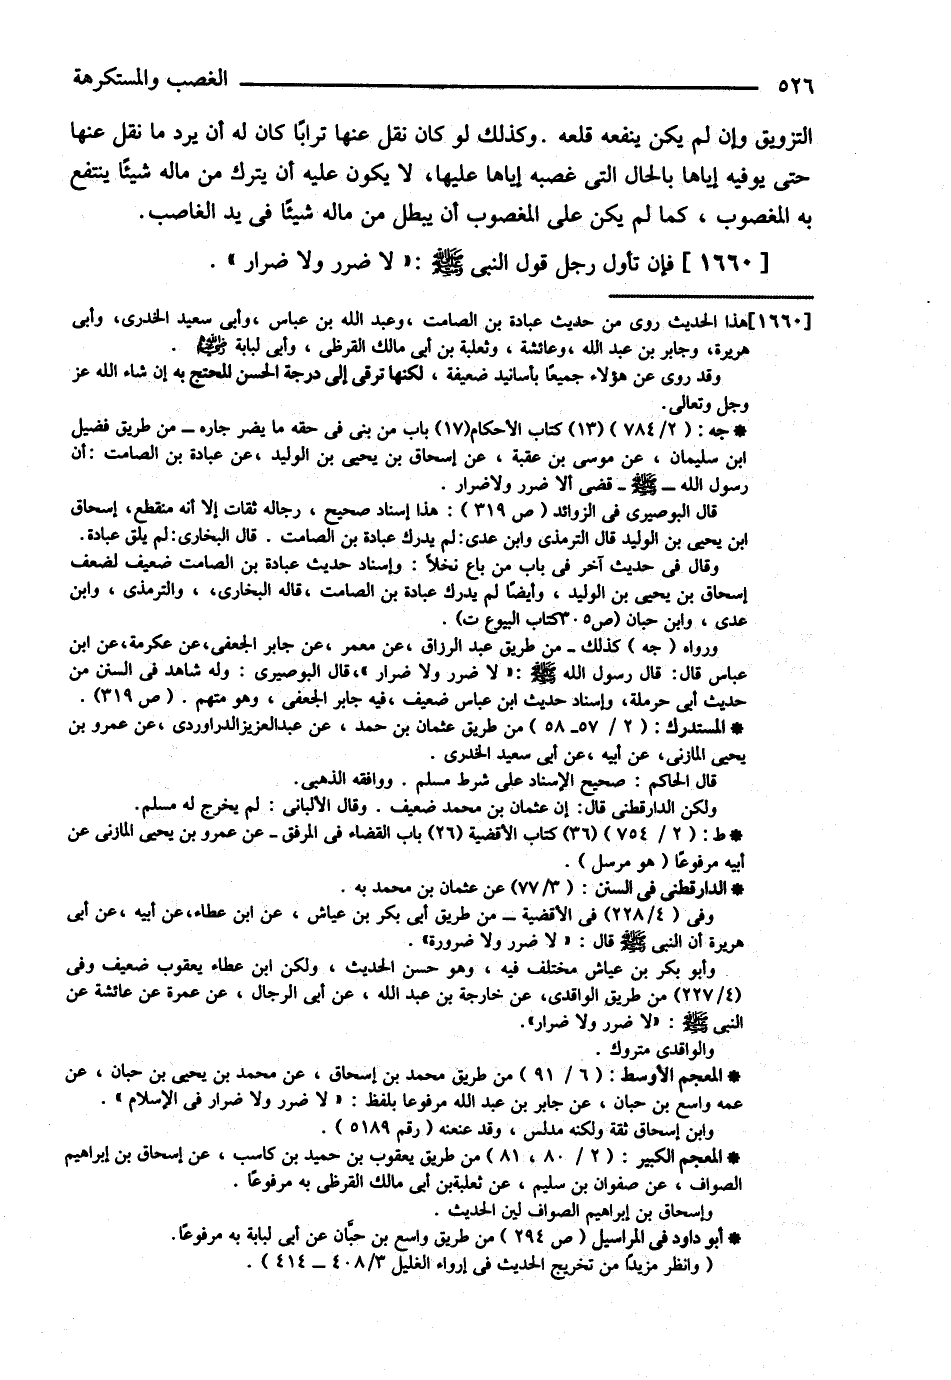 ٥٢٦ الغصب والمستكرهة
التزويق وإن لم يكن ينفعه قلعه . وكذلك لو كان نقل عنها ترابًا كان له أن يرد ما نقل عنها
حتى يوفيه إياها بالحال التى غصبه إياها عليها، لا يكون عليه أن يترك من ماله شيئًا ينتفع
به المغصوب ، كما لم يكن على المغصوب أن يبطل من ماله شيئًا فى يد الغاصب.
[ ١٦٦٠ ] فإن تأول رجل قول النبى ﷺ :« لا ضرر ولا ضرار » .
[١٦٦٠]هذا الحديث روى من حديث عبادة بن الصامت ،وعبد الله بن عباس ،وأبى سعيد الخدرى، وأبى
هريرة، وجابر بن عبد الله ،وعائشة ، وثعلبة بن أبى مالك القرظى ، وأبى لبابة رضي الله عنهم .
وقد روى عن هؤلاء جميعًا بأسانيد ضعيفة ، لكنها ترقى إلى درجة الحسن للمحتج به إن شاء الله عز
وجل وتعالى.
* جه : ( ٢/ ٧٨٤ ) (١٣) كتاب الأحكام(١٧) باب من بنى فى حقه ما يضر جاره ــ من طريق فضيل
ابن سليمان ، عن موسى بن عقبة ، عن إسحاق بن يحيى بن الوليد ،عن عبادة بن الصامت :أن
رسول الله ــ ﷺ ــ قضى ألا ضرر ولاضرار .
قال البوصيرى فى الزوائد ( ص ٣١٩ ) : هذا إسناد صحيح ، رجاله ثقات إلا أنه منقطع، إسحاق
ابن يحيى بن الوليد قال الترمذى وابن عدى:لم يدرك عبادة بن الصامت . قال البخارى:لم يلق عبادة.
وقال فى حديث آخر فى باب من باع نخلاً : وإسناد حديث عبادة بن الصامت ضعيف لضعف
إسحاق بن يحيى بن الوليد ، وأيضًا لم يدرك عبادة بن الصامت ،قاله البخارى، ، والترمذى ، وابن
عدى ، وابن حبان (ص٣٠٥كتاب البيوع ت) .
ورواه ( جه ) كذلك ــ من طريق عبد الرزاق ،عن معمر ،عن جابر الجعفى،عن عكرمة،عن ابن
عباس قال: قال رسول الله ﷺ :« لا ضرر ولا ضرار »،قال البوصيرى : وله شاهد فى السنن من
حديث أبى حرملة، وإسناد حديث ابن عباس ضعيف ،فيه جابر الجعفى ، وهو متهم . ( ص ٣١٩) .
* المستدرك : ( ٢ / ٥٧ــ ٥٨ ) من طريق عثمان بن حمد ، عن عبدالعزيزالدراوردى ،عن عمرو بن
يحيى المازنى، عن أبيه ،عن أبى سعيد الخدرى .
قال الحاكم : صحيح الإسناد على شرط مسلم . ووافقه الذهبى.
ولكن الدارقطنى قال: إن عثمان بن محمد ضعيف . وقال الألبانى : لم يخرج له مسلم.
* ط : ( ٢ / ٧٥٤ ) (٣٦) كتاب الأقضية (٢٦) باب القضاء فى المرفق ــ عن عمرو بن يحيى المازنى عن
أبيه مرفوعًا ( هو مرسل ) .
* الدارقطنى فى السنن : ( ٧٧/٣) عن عثمان بن محمد به .
وفى ( ٢٢٨/٤) فى الأقضية ــ من طريق أبى بكر بن عياش ، عن ابن عطاء،عن أبيه ،عن أبى
هريرة أن النبى ﷺ قال : « لا ضرر ولا ضرورة» .
وأبو بكر بن عياش مختلف فيه ، وهو حسن الحديث ، ولكن ابن عطاء يعقوب ضعيف وفى
(٢٢٧/٤) من طريق الواقدى، عن خارجة بن عبد الله ، عن أبى الرجال ، عن عمرة عن عائشة عن
النبى ﷺ : «لا ضرر ولا ضرار».
والواقدى متروك .
* المعجم الأوسط : ( ٦ / ٩١ ) من طريق محمد بن إسحاق ، عن محمد بن يحيى بن حبان ، عن
عمه واسع بن حبان ، عن جابر بن عبد الله مرفوعا بلفظ : « لا ضرر ولا ضرار فى الإسلام » .
وابن إسحاق ثقة ولكنه مدلس ، وقد عنعنه ( رقم ٥١٨٩ ) .
* المعجم الكبير : ( ٢ / ٨٠ ، ٨١ ) من طريق يعقوب بن حميد بن كاسب ، عن إسحاق بن إبراهيم
الصواف ، عن صفوان بن سليم ، عن ثعلبةبن أبى مالك القرظى به مرفوعًا .
وإسحاق بن إبراهيم الصواف لين الحديث .
* أبو داود فى المراسيل ( ص ٢٩٤ ) من طريق واسع بن حبَّان عن أبى لبابة به مرفوعًا.
( وانظر مزيدًا من تخريج الحديث فى إرواء الغليل ٤٠٨/٣ ــ ٤١٤ ) .